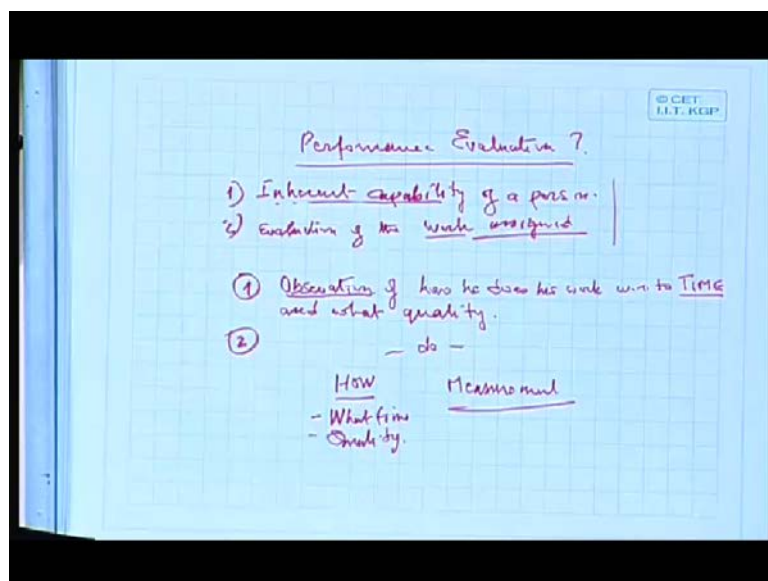 © CET
I.I.T. KGP
Performance Evaluation ?
1) Inherent capability of a person.
2) Evaluation of the work assigned
① Observation of how he does his work w.r. to TIME
and what quality.
② — do —
How Measurement
- What time
- Quality.